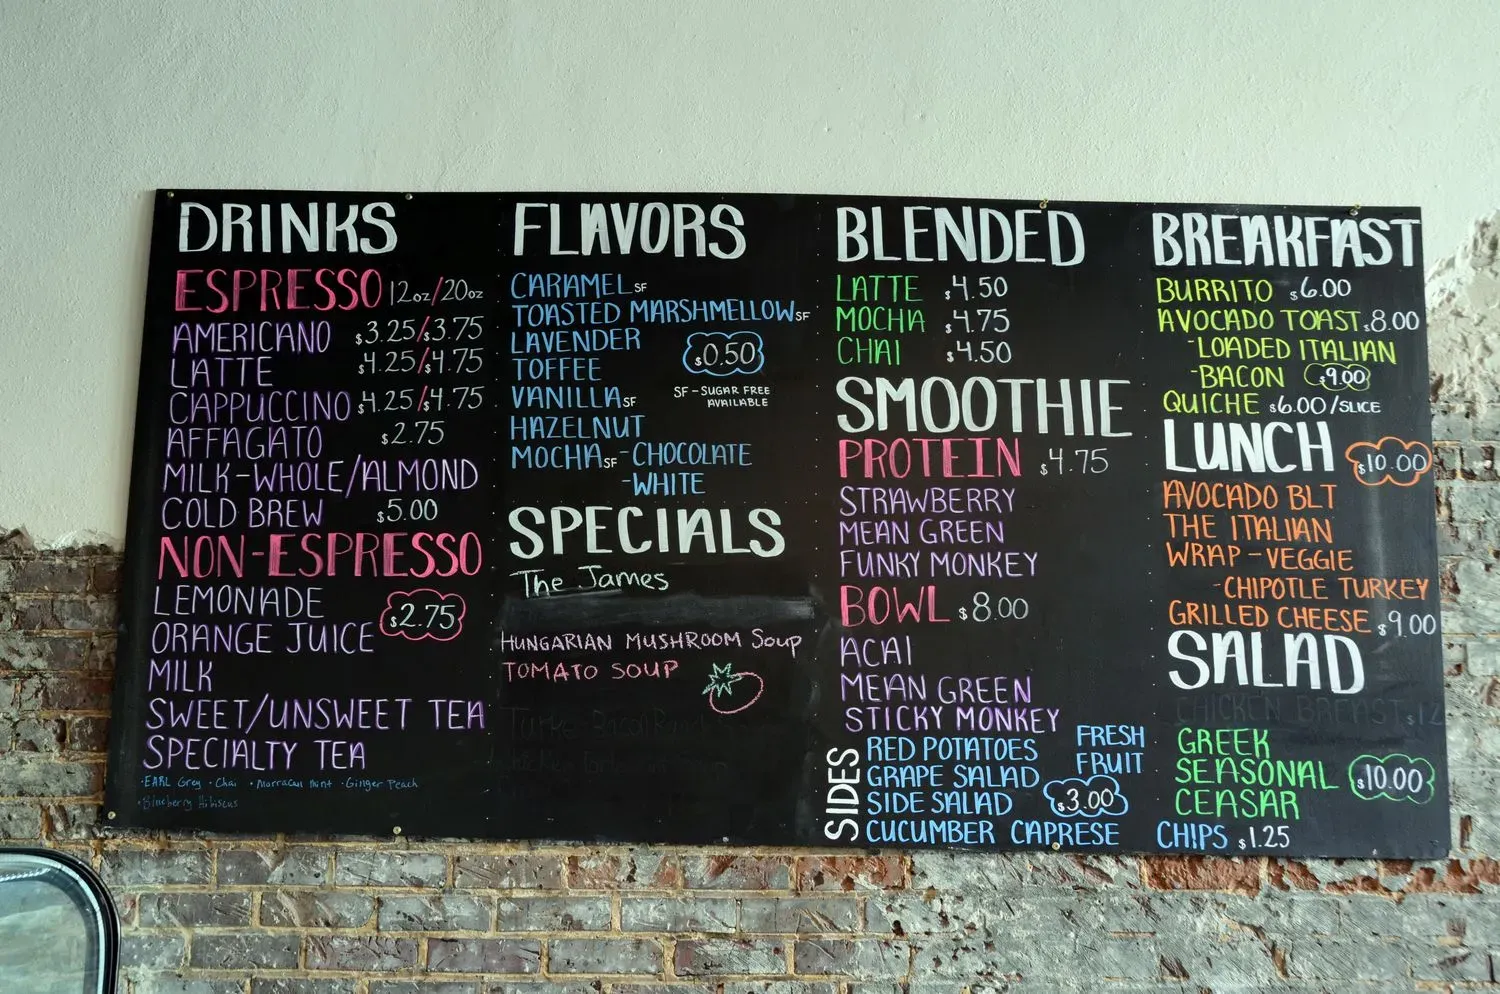 DRINKS
ESPRESSO 12oz/20oz
AMERICANO $3.25/$3.75
LATTE $4.25/$4.75
CAPPUCCINO $4.25/$4.75
AFFAGATO $2.75
MILK-WHOLE/ALMOND
COLD BREW $5.00
NON-ESPRESSO
LEMONADE
$2.75
ORANGE JUICE
MILK
SWEET/UNSWEET TEA
SPECIALTY TEA
·EARL Grey ·Chai ·Marracan mint ·Ginger Peach
·Blueberry Hibiscus
FLAVORS
CARAMEL SF
TOASTED MARSHMELLOW SF
LAVENDER
$0.50
TOFFEE
VANILLA SF
SF-SUGAR FREE
AVAILABLE
HAZELNUT
MOCHA SF -CHOCOLATE
-WHITE
SPECIALS
The James
HUNGARIAN MUSHROOM Soup
TOMATO SOUP
BLENDED
LATTE $4.50
MOCHA $4.75
CHAI $4.50
SMOOTHIE
PROTEIN $4.75
STRAWBERRY
MEAN GREEN
FUNKY MONKEY
BOWL $8.00
ACAI
MEAN GREEN
STICKY MONKEY
SIDES
RED POTATOES
GRAPE SALAD
SIDE SALAD
CUCUMBER CAPRESE
FRESH
FRUIT
$3.00
BREAKFAST
BURRITO $6.00
AVOCADO TOAST $8.00
-LOADED ITALIAN
-BACON $9.00
QUICHE $6.00/SLICE
LUNCH $10.00
AVOCADO BLT
THE ITALIAN
WRAP-VEGGIE
-CHIPOTLE TURKEY
GRILLED CHEESE $9.00
SALAD
CHICKEN BREAST $12
GREEK
SEASONAL $10.00
CEASAR
CHIPS $1.25